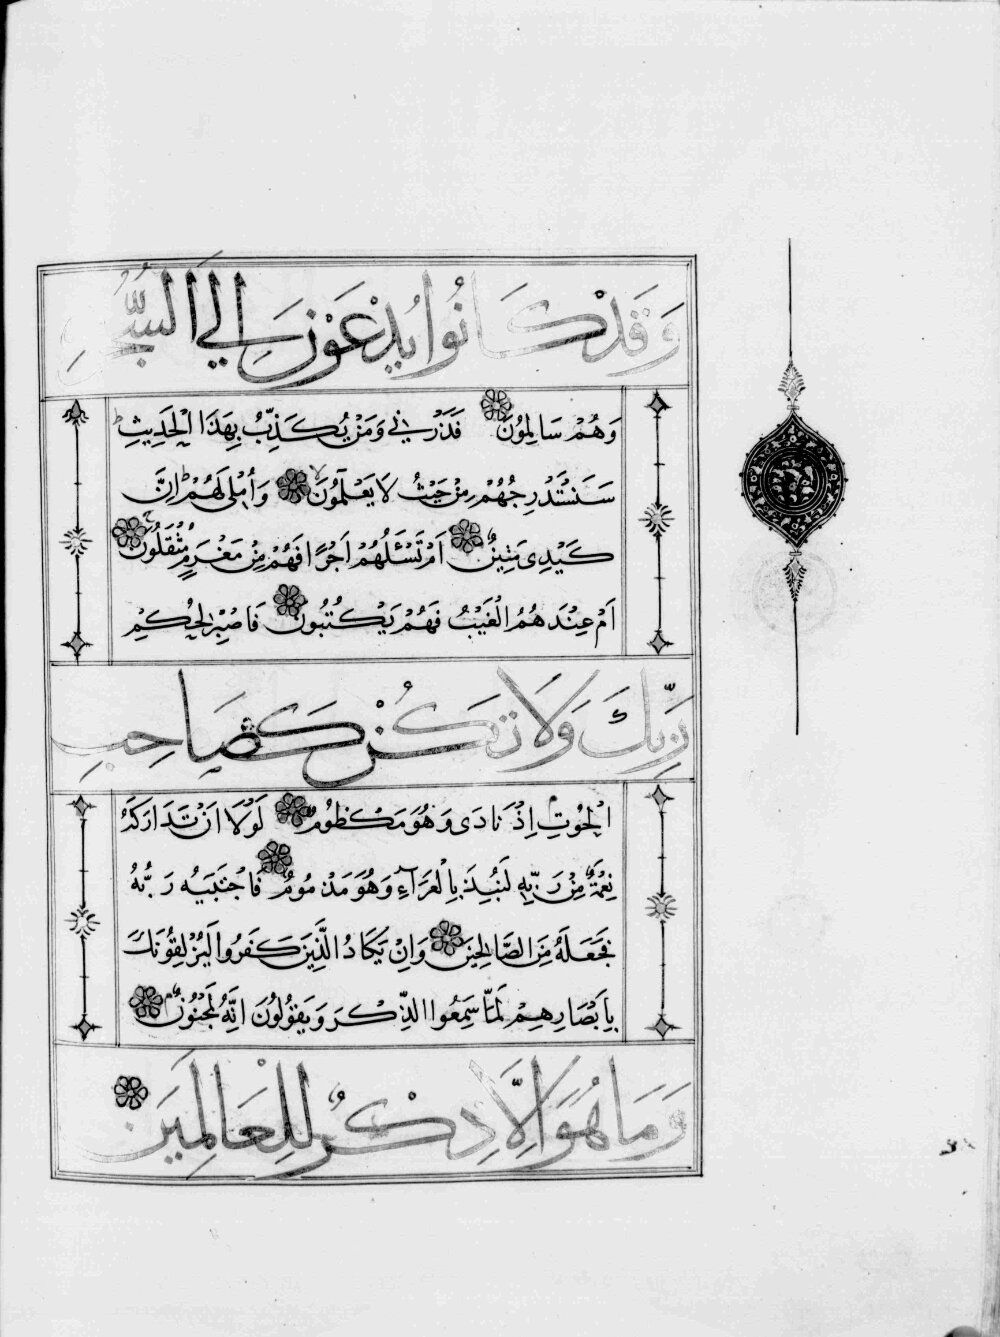 وَقَدْ كَانُوا يُدْعَوْنَ اِلَي السُّجُودِ
وَهُمْ سَالِمُونَ فَذَرْنِي وَمَنْ يُكَذِّبُ بِهَذَا الْحَدِيثِ
سَنَسْتَدْرِجُهُمْ مِنْ حَيْثُ لَا يَعْلَمُونَ وَأُمْلِي لَهُمْ اِنَّ
كَيْدِي مَتِينٌ اَمْ تَسْئَلُهُمْ اَجْرًا فَهُمْ مِنْ مَغْرَمٍ مُثْقَلُونَ
اَمْ عِنْدَهُمُ الْغَيْبُ فَهُمْ يَكْتُبُونَ فَاصْبِرْ لِحُكْمِ
رَبِّكَ وَلَا تَكُنْ كَصَاحِبِ
الْحُوتِ اِذْ نَادَى وَهُوَ مَكْظُومٌ لَوْلَا اَنْ تَدَارَكَهُ
نِعْمَةٌ مِنْ رَبِّهِ لَنُبِذَ بِالْعَرَآءِ وَهُوَ مَذْمُومٌ فَاجْتَبَيهُ رَبُّهُ
فَجَعَلَهُ مِنَ الصَّالِحِينَ وَاِنْ يَكَادُ الَّذِينَ كَفَرُوا لَيُزْلِقُونَكَ
بِاَبْصَارِهِمْ لَمَّا سَمِعُوا الذِّكْرَ وَيَقُولُونَ اِنَّهُ لَمَجْنُونٌ
وَمَا هُوَ اِلَّا ذِكْرٌ لِلْعَالَمِينَ